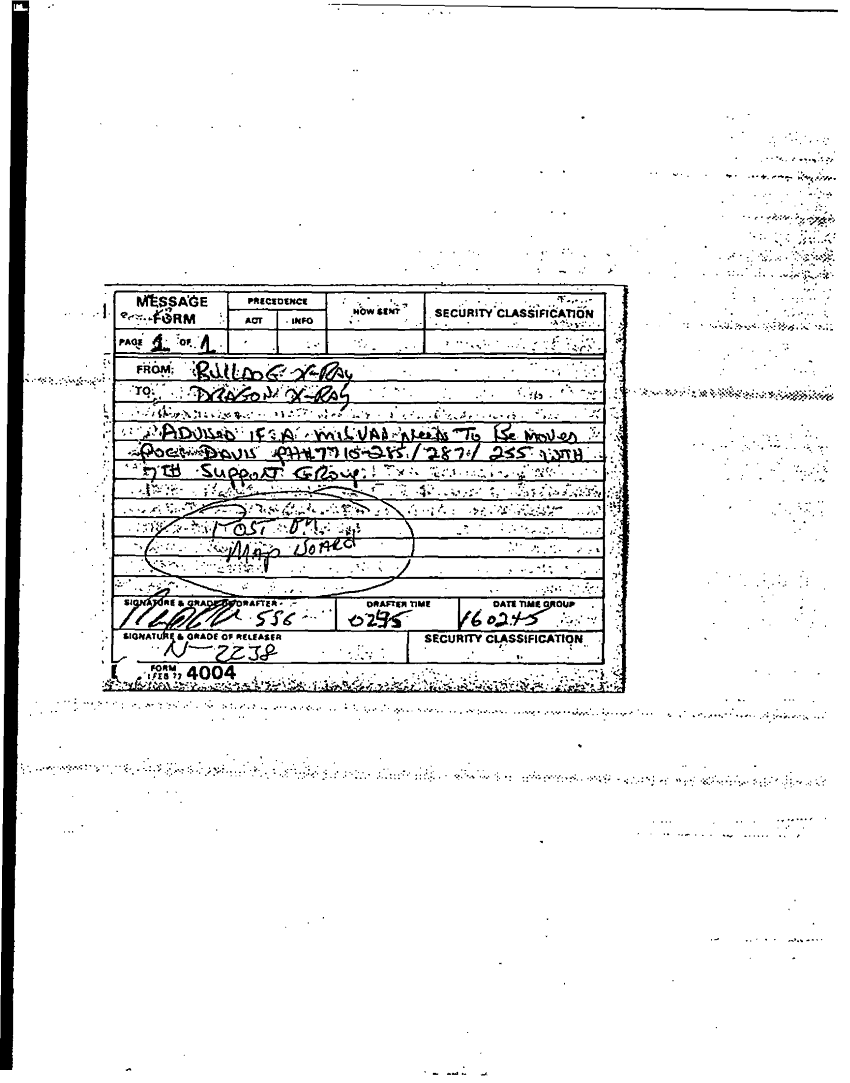 MESSAGE FORM
PRECEDENCE
ACT INFO
HOW SENT
SECURITY CLASSIFICATION
PAGE 1 OF 1
FROM: BULLDOG X-RAY
TO: DRAGON X-RAY
ADVISED IF A MILVAN NEEDS TO BE MOVED
POC: DAVIS PH# 7710-285/287/255 WITH
7TH SUPPORT GROUP.
POST ON
MAP BOARD
SIGNATURE & GRADE OF DRAFTER
DRAFTER TIME
DATE TIME GROUP
0245
160245
SIGNATURE & GRADE OF RELEASER
SECURITY CLASSIFICATION
N-2238
FORM
1 FEB 77 4004